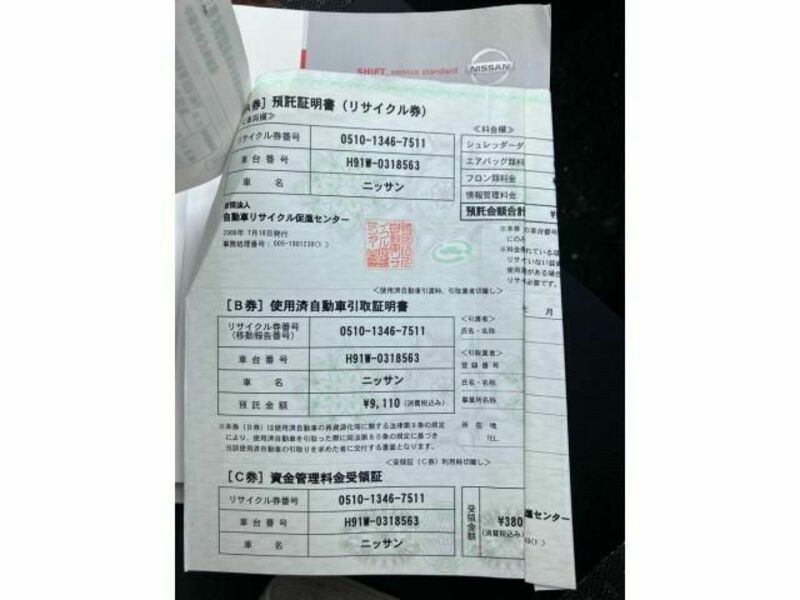 SHIFT_service standard
NISSAN
A券］預託証明書（リサイクル券）
リサイクル券番号
0510-1346-7511
車台番号
H91W-0318563
車名
ニッサン
財団法人
自動車リサイクル促進センター
2006年 7月18日発行
＜料金欄＞
シュレッダーダ
エアバッグ類料
フロン類料金
情報管理料金
預託金額合計
＜使用済自動車引渡時、引取業者切離し＞
［B券］使用済自動車引取証明書
リサイクル券番号
（移動報告番号）
0510-1346-7511
車台番号
H91W-0318563
車名
ニッサン
預託金額
¥9,110（消費税込み）
＜引渡者＞
氏名・名称
＜引取業者＞
登録番号
氏名・名称
事業所名称
所在地
TEL
※本券（B券）は使用済自動車の再資源化等に関する法律第9条の規定
により、使用済自動車を引取った際に同法第80条の規定に基づき
当該使用済自動車の引取りを求めた者に交付する書面となります。
＜受領証（C券）利用時切離し＞
［C券］資金管理料金受領証
リサイクル券番号
0510-1346-7511
車台番号
H91W-0318563
車名
ニッサン
受領金額
¥380
（消費税込み）
進センター